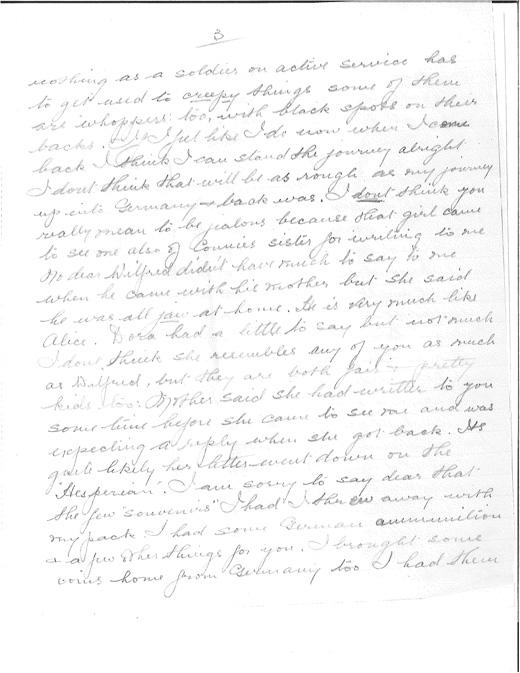 3
nothing as a soldier on active service has
to get used to creepy things some of them
are whoppers too, with black spots on their
backs. If I feel like I do now when I come
back I think I can stand the journey alright
I dont think that will be as rough as my journey
up into Germany & back was. I dont think you
really mean to be jealous because that girl came
to see me also of Connies sister for writing to me
No dear Wilfred didn't have much to say to me
when he came with his mother but she said
he was all jaw at home. He is very much like
Alice. Dora had a little to say but not much
I dont think she resembles any of you as much
as Wilfred, but they are both fair & pretty
kids too. Mother said she had written to you
some time before she came to see me and was
expecting a reply when she got back. Its
quite likely her letter went down on the
"Hesperian". I am sorry to say dear that
the few "souvenirs" I had I threw away with
my pack I had some German ammunition
& a few other things for you. I brought some
coins home from Germany too I had them